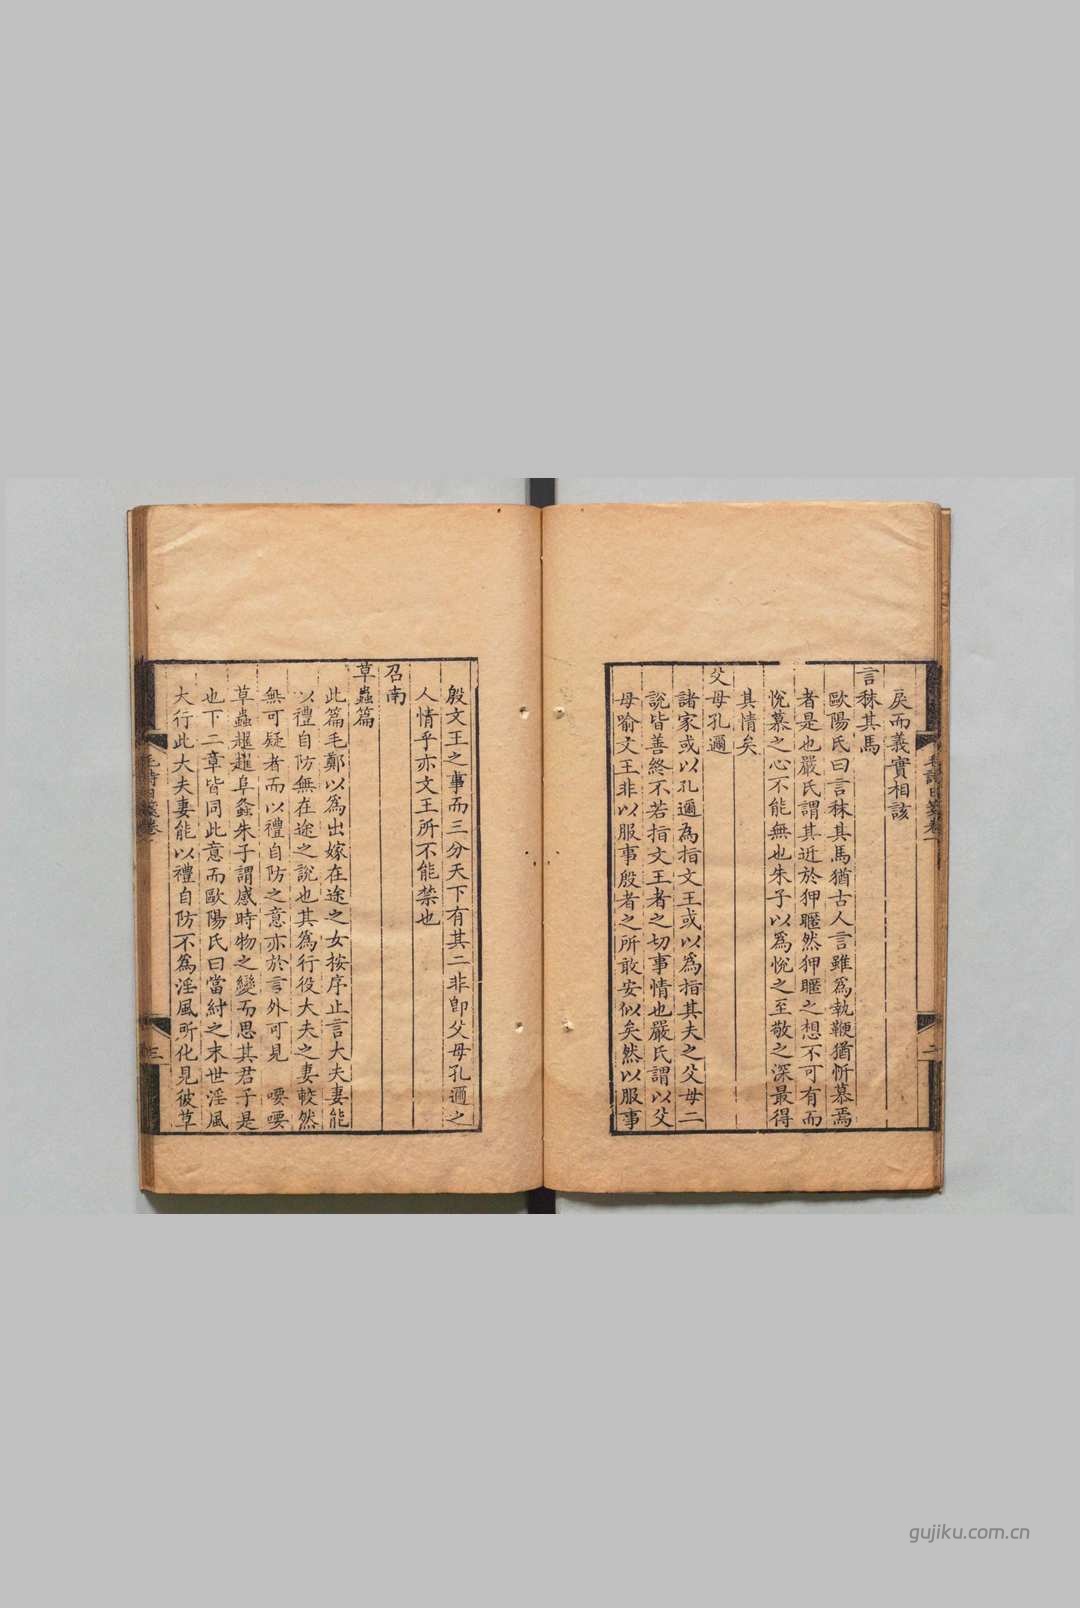 戾而義實相該
言秣其馬
歐陽氏曰言秣其馬猶古人言雖爲執鞭猶忻慕焉
者是也嚴氏謂其近於狎暱然狎暱之想不可有而
悅慕之心不能無也朱子以爲悅之至敬之深最得
其情矣
父母孔邇
諸家或以孔邇為指文王或以爲指其夫之父母二
說皆善終不若指文王者之切事情也嚴氏謂以父
母喻文王非以服事殷者之所敢安似矣然以服事
殷文王之事而三分天下有其二非卽父母孔邇之
人情乎亦文王所不能禁也
召南
草蟲篇
此篇毛鄭以爲出嫁在途之女按序止言大夫妻能
以禮自防無在途之說也其爲行役大夫之妻較然
無可疑者而以禮自防之意亦於言外可見 喓喓
草蟲趯趯阜螽朱子謂感時物之變而思其君子是
也下二章皆同此意而歐陽氏曰當紂之末世淫風
大行此大夫妻能以禮自防不為淫風所化見彼草
毛詩日箋卷一
二
毛詩日箋卷一
三
gujiku.com.cn